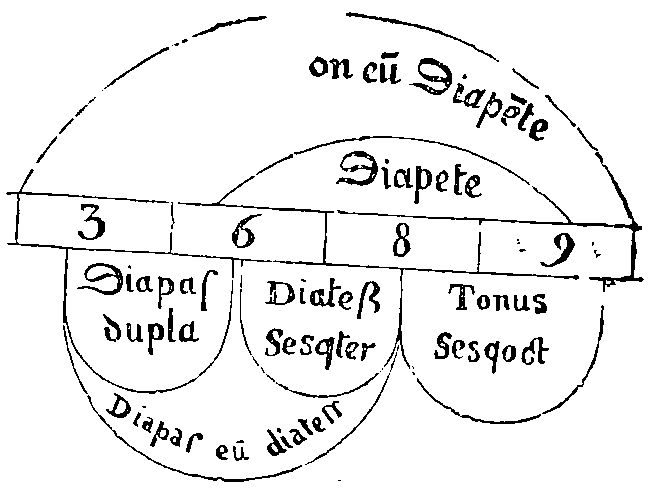 on cū Diapēte
Diapete
3 6 8 9
Diapaſ
dupla
Diateß
Sesqter
Tonus
Sesqoct
Diapaſ cū diateſſ